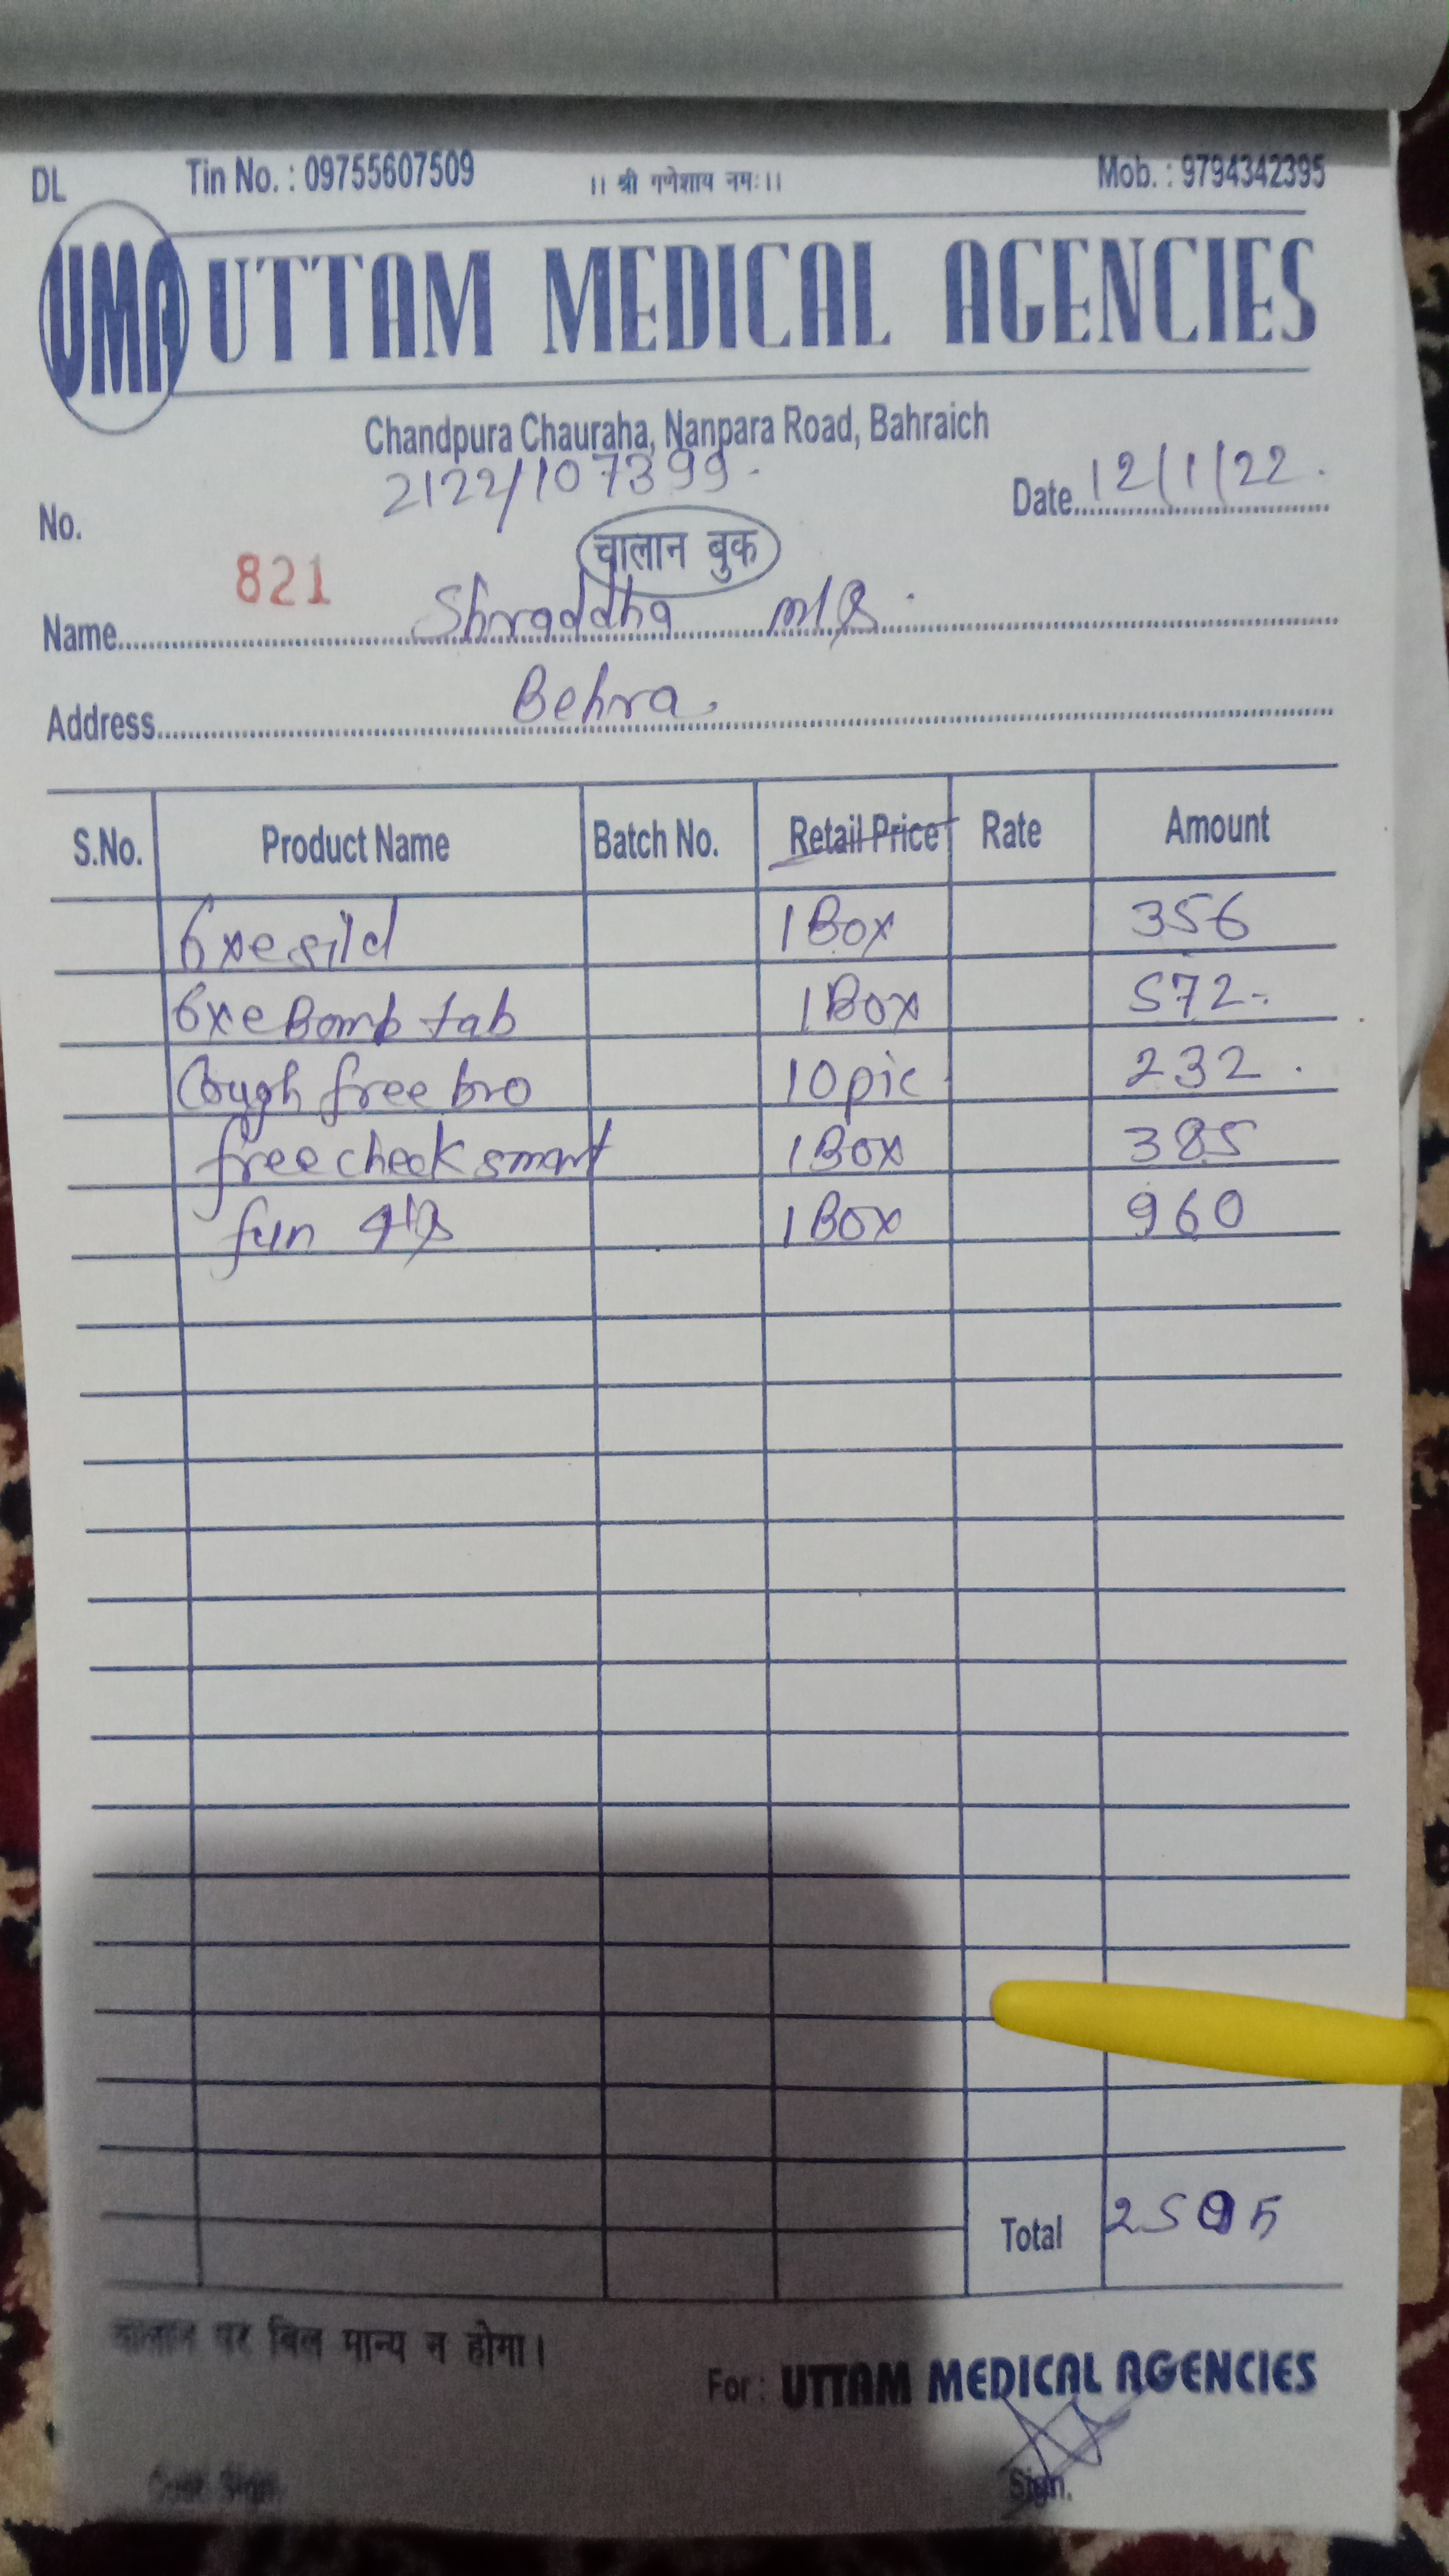 DL Tin No. : 09755607509 ।। श्री गणेशाय नमः।। Mob. : 9794342395
UMA UTTAM MEDICAL AGENCIES
Chandpura Chauraha, Nanpara Road, Bahraich
2122/107399 Date 12/1/22
No. 821 चालान बुक
Name Shraddha
Address Behra
S.No. Product Name Batch No. Retail Price Rate Amount
6xesild 1 Box 356
6xe Bomb tab 1 Box 572
Cough free bro 10 pic 232
free check smart 1 Box 385
fun 1 Box 960
Total 2505
चालान पर बिल मान्य न होगा।
For : UTTAM MEDICAL AGENCIES
Cust. Sign. Sign.